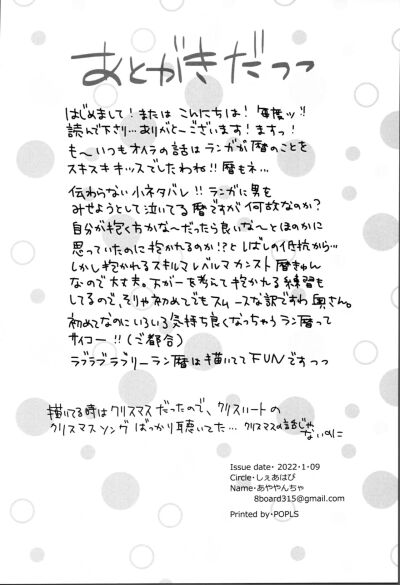 あとがきだっっ
はじめまして！または こんにちは！毎度ッ!!
読んで下さり…ありがと〜ございます！ますっ！
も〜いつもオハラの話は ランガが暦のことを
スキスキキッズでしたわね!! 暦もネ…
伝わらない小ネタバレ!! ランガに男も
みせようとして泣いてる暦ですが 何故なのか？
自分が抱く方かな〜だったら良いな〜とほのかに
思っていたのに抱かれるのか!?としばしの抵抗から…
しかし抱かれるスキルマレベルマカンスト 暦きゅん
なので大丈夫。万が一を考えて抱かれる練習も
してるので、そりゃ初めてでもスムーズな訳ですわ 奥さん。
初めてなのにいろいろ気持ち良くなっちゃうラン暦って
サイコー!!（ご都合）
ラブラブラブリーラン暦は描いててFUNですっっ
描いてる時はクリスマスだったので、クリスハートの
クリスマスソングばっかり聴いてた… クリスマスの話じゃ
ないのに
Issue date・ 2022・1・09
Circle・しぇあはぴ
Name・あややんちゃ
8board315@gmail.com
Printed by・POPLS